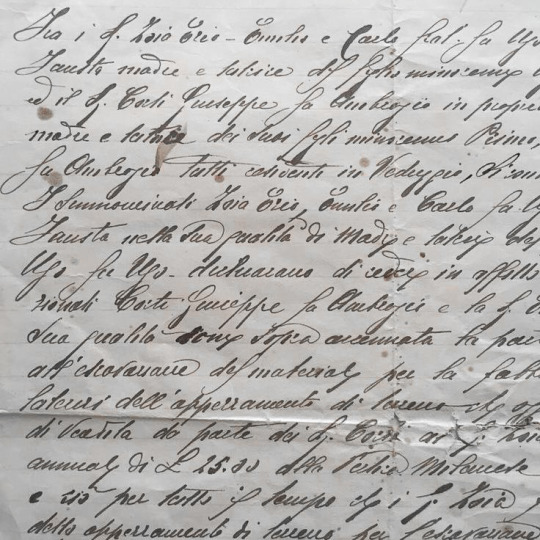 Tra i S. Zoia Ezio - Emilio e Carlo frat. fu Ugo
Fausta madre e tutrice del figlio minorenne
ed il S. Corti Giuseppe fu Ambrogio in proprio
madre e tutrice dei suoi figli minorenni Primo,
fu Ambrogio tutti conventi in Vedeggio, si con
I summenzionati Zoia Ezio, Emilio e Carlo fu
Fausta nella sua qualità di Madre e tutrice del
Ugo fu Ugo - dichiarano di cedere in affitto
zionati Corti Giuseppe fu Ambrogio e la S.
sua qualità come sopra accennata la par
all'escavazione del materiale per la fabb
laterizi dell'apperramento di terreno che
di Vendita da parte dei S. Corti ai S. Zoia
annuale di £ 25.30 alla Milanese
e ciò per tutto il tempo che i S. Zoia
detto apperramento di terreno per l'escavazione